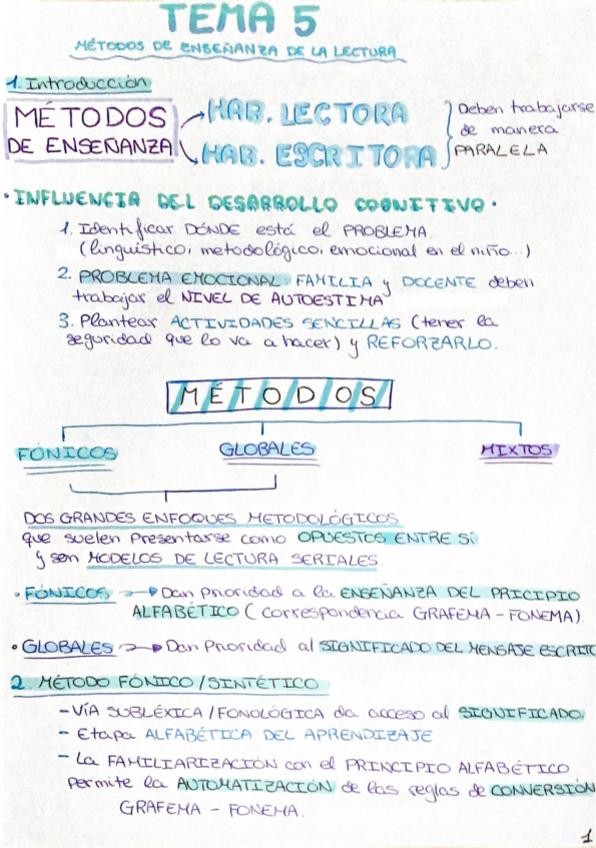 TEMA 5
MÉTODOS DE ENSEÑANZA DE LA LECTURA
1. Introducción
MÉTODOS
DE ENSEÑANZA
HAB. LECTORA
HAB. ESCRITORA
Deben trabajarse
de manera
PARALELA
• INFLUENCIA DEL DESARROLLO COGNITIVO •
1. Identificar DÓNDE está el PROBLEMA.
(linguístico, metodológico, emocional en el niño...)
2. PROBLEMA EMOCIONAL. FAMILIA y DOCENTE deben
trabajar el NIVEL DE AUTOESTIMA
3. Plantear ACTIVIDADES SENCILLAS (tener la
seguridad que lo va a hacer) y REFORZARLO.
MÉTODOS
FÓNICOS
GLOBALES
MIXTOS
DOS GRANDES ENFOQUES METODOLÓGICOS
que suelen presentarse como OPUESTOS ENTRE SÍ
y son MODELOS DE LECTURA SERIALES
• FÓNICOS → Dan prioridad a la ENSEÑANZA DEL PRICIPIO
ALFABÉTICO (correspondencia GRAFEMA - FONEMA).
• GLOBALES → Dan Prioridad al SIGNIFICADO DEL MENSAJE ESCRITO
2. MÉTODO FÓNICO / SINTÉTICO
- VÍA SUBLÉXICA / FONOLÓGICA da acceso al SIGNIFICADO.
- Etapa ALFABÉTICA DEL APRENDIZAJE
- La FAMILIARIZACIÓN con el PRINCIPIO ALFABÉTICO
permite la AUTOMATIZACIÓN de las reglas de CONVERSIÓN
GRAFEMA - FONEMA.
1